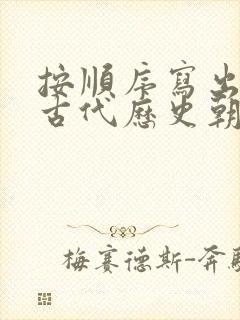 按順序寫出
古代歷史朝
梅賽德斯-奔馳